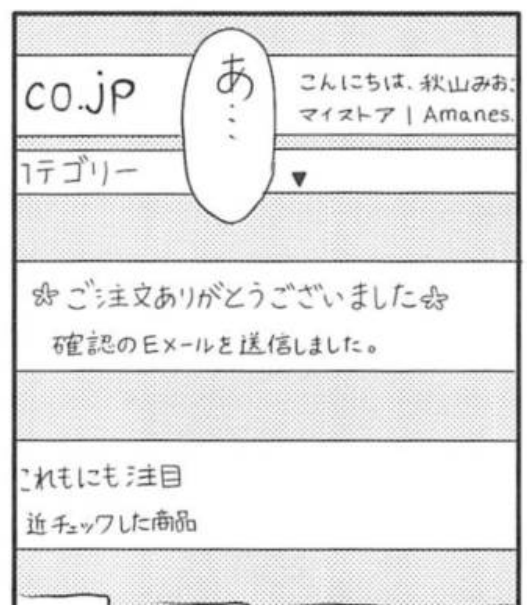 co.jp
あ…
こんにちは、秋山みお
マイストア | Amanes.
カテゴリー ▼
ご注文ありがとうございました
確認のEメールを送信しました。
これもにも注目
近チェックした商品